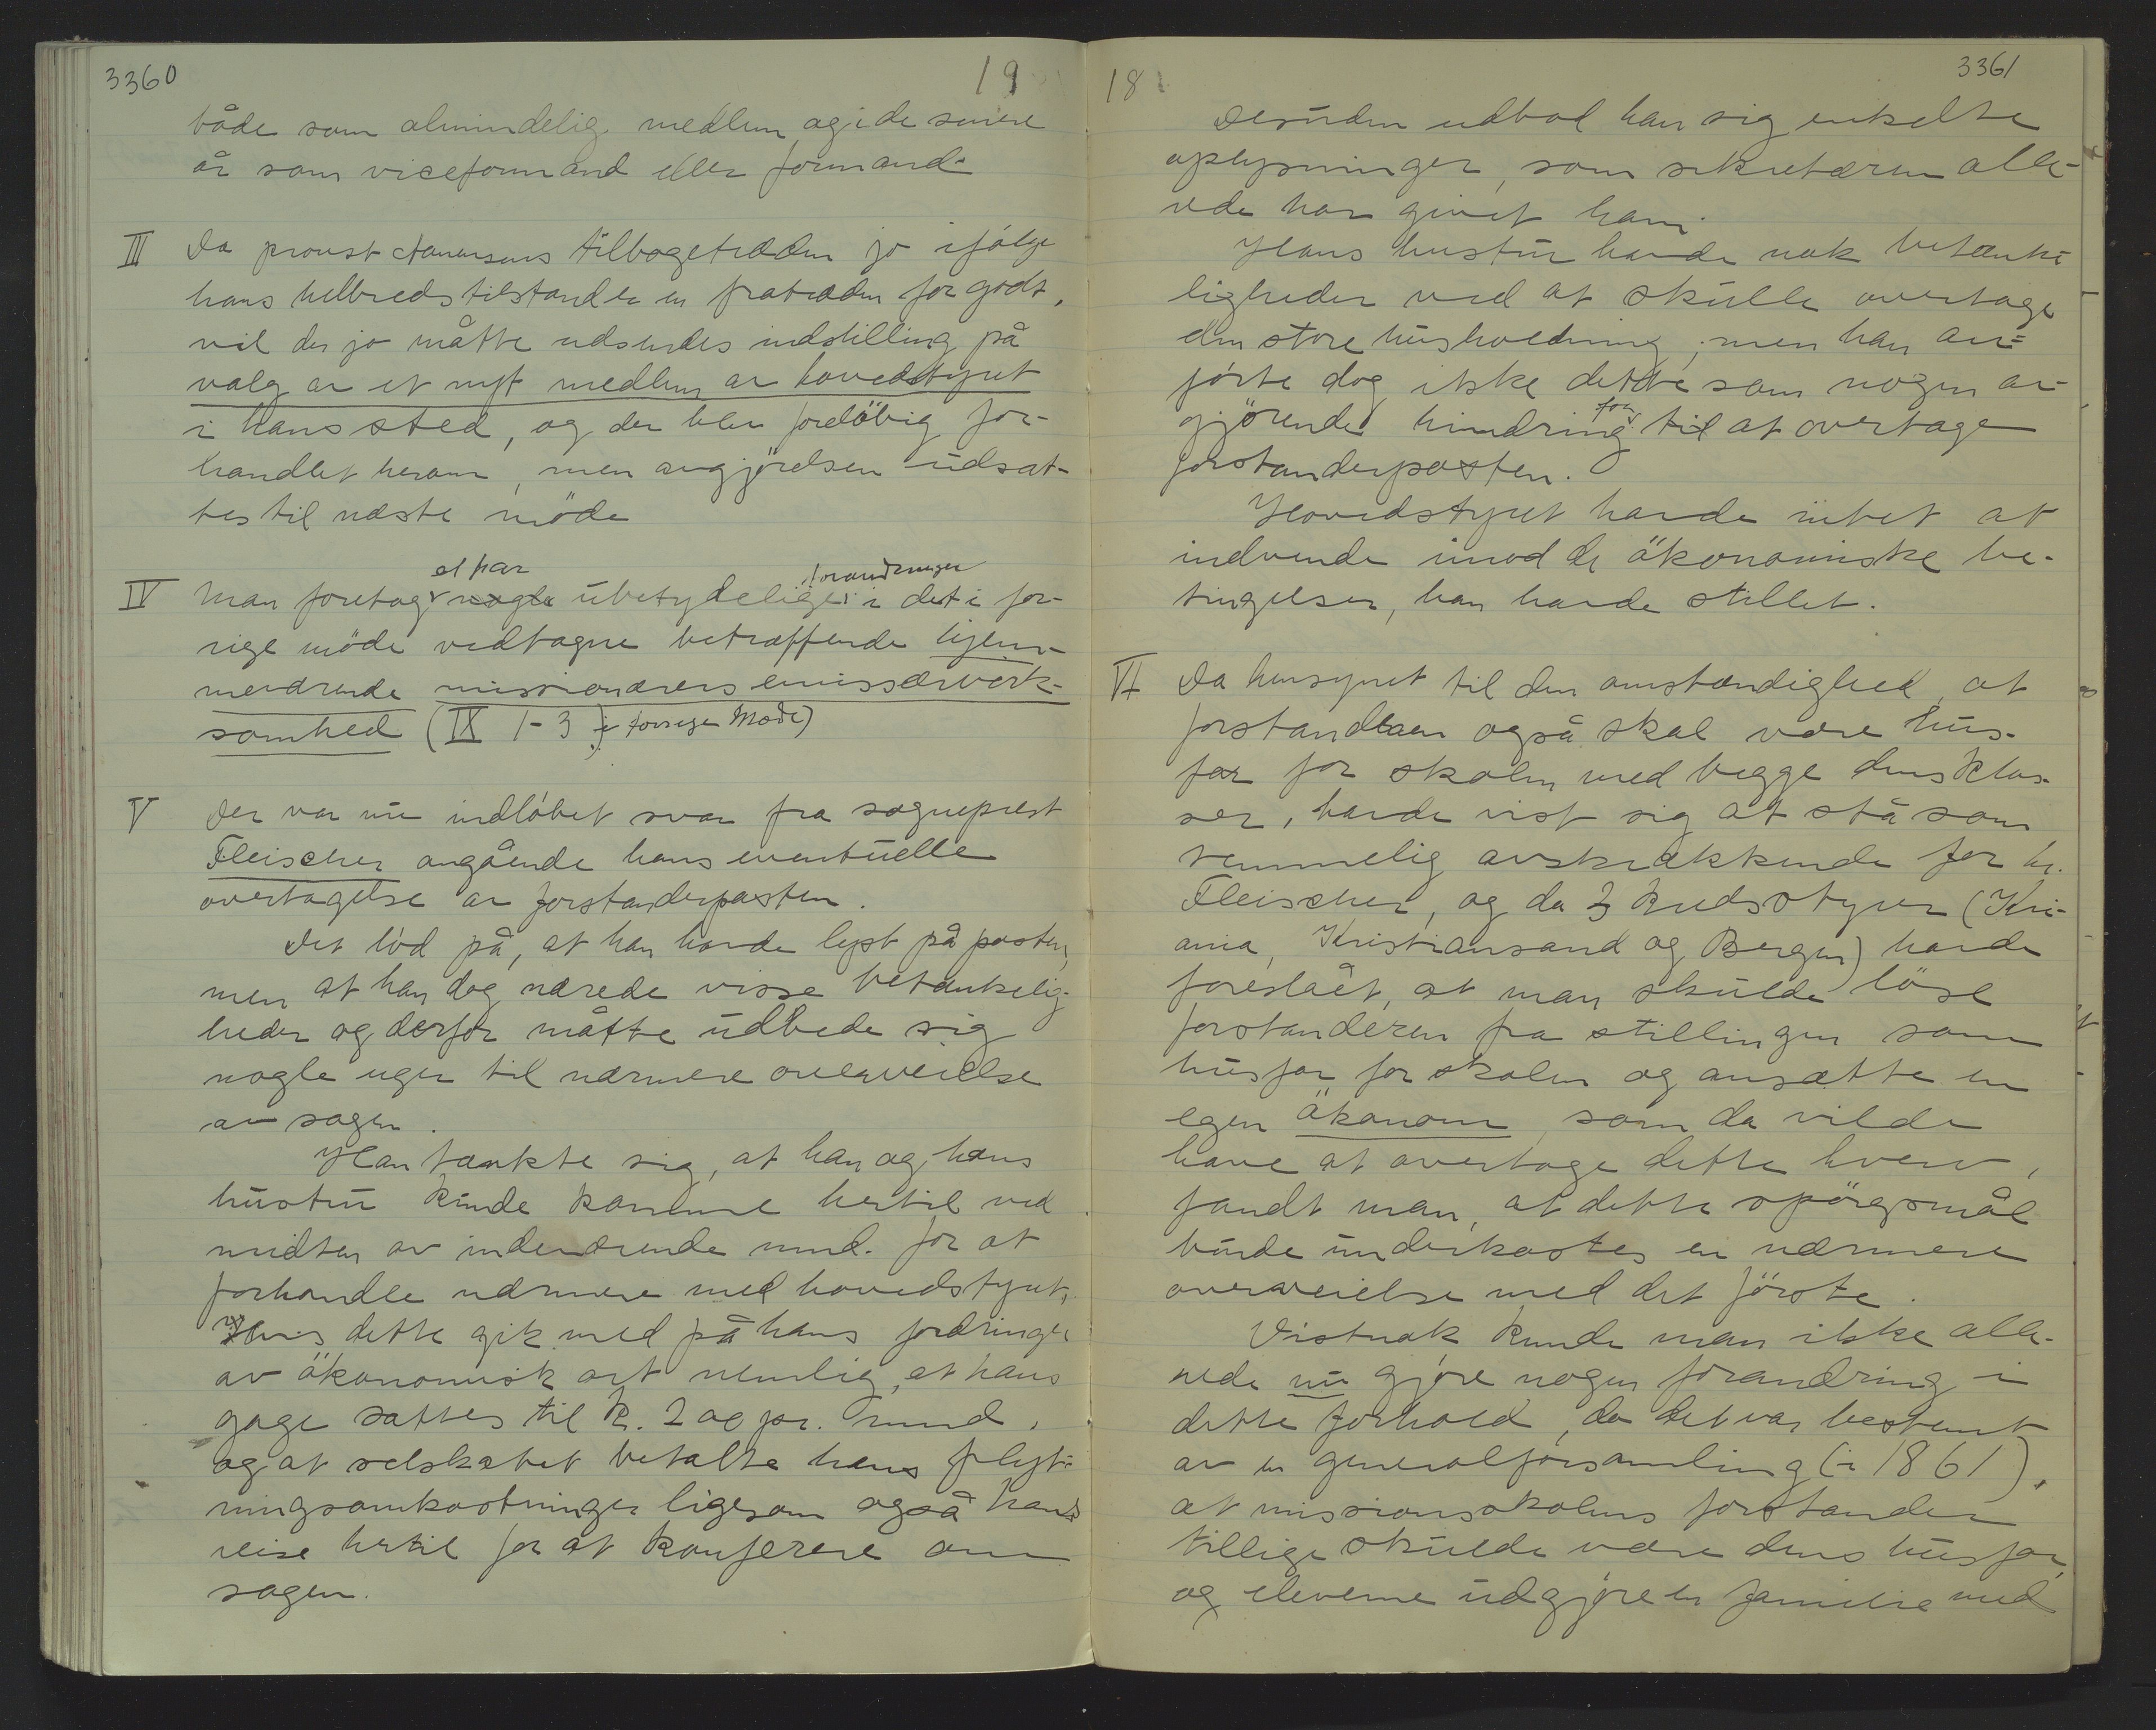 3360
19
både som almindelig medlem og i de senere
år som viceformand eller formand.
III Da provst Aanensens tilbagetræden jo ifölge
hans helbredstilstand er en fratræden for godt,
vil der jo måtte udsendes indstilling på
valg av et nyt medlem av hovedstyret
i hans sted, og der blev forelöbig for-
handlet herom, men avgjörelsen udsat-
tes til næste möde
IV Man foretog et par nogle ubetydelige forandringer i det i for-
rige möde vedtagne betræffende hjem-
meværende missionærers emissærvirk-
somhed (IX 1-3 i forrige Mode)
V Der var nu indlöbet svar fra sogneprest
Fleischer angående hans eventuelle
overtagelse av forstanderposten.
Det löd på, at han havde lyst på posten,
men at han dog nærede visse betænkelig-
heder og derfor måtte udbede sig
nogle uger til nærmere overveielse
av sagen.
Han tænkte sig, at han og hans
hustru kunde komme hertil ved
midten av indeværende mnd. for at
forhandle nærmere med hovedstyret,
hvis dette gik med på hans fordringer
av ökonomisk art nemlig, at hans
gage sattes til K. 200 pr. mnd.
og at selskabet betalte hans flyt-
ningsomkostninger ligesom også hans
reise hertil for at konferere om
sagen.
18
3361
Desuden udbad han sig enkelte
oplysninger, som sekretæren alle-
rede har givet ham.
Hans hustru havde nok betænke-
ligheder ved at skulle overtage
den store husholdning; men han an-
förte dog ikke dette som nogen av-
gjörende hindring for til at overtage
forstanderposten.
Hovedstyret havde intet at
indvende imod de ökonomiske be-
tingelser, han havde stillet.
VI Da hensynet til den omstændighed, at
forstanderen også skal være hus-
far for skolen med begge dens klas-
ser, havde vist sig at stå som
temmelig avskrækkende for hr.
Fleischer, og da 3 kredsstyrer (Kri-
ania, Kristiansand og Bergen) havde
foreslået, at man skulde löse
forstanderen fra stillingen som
husfar for skolen og ansætte en
egen ökonom, som da vilde
have at overtage dette hverv,
fandt man, at dette spörgsmål
burde underkastes en nærmere
overveielse med det förste.
Vistnok kunde man ikke alle-
rede nu gjöre nogen forandring i
dette forhold, da det var bestemt
av en generalforsamling (i 1861),
at missionsskolens forstander
tillige skulde være dens husfar,
og eleverne udgjöre en familie med